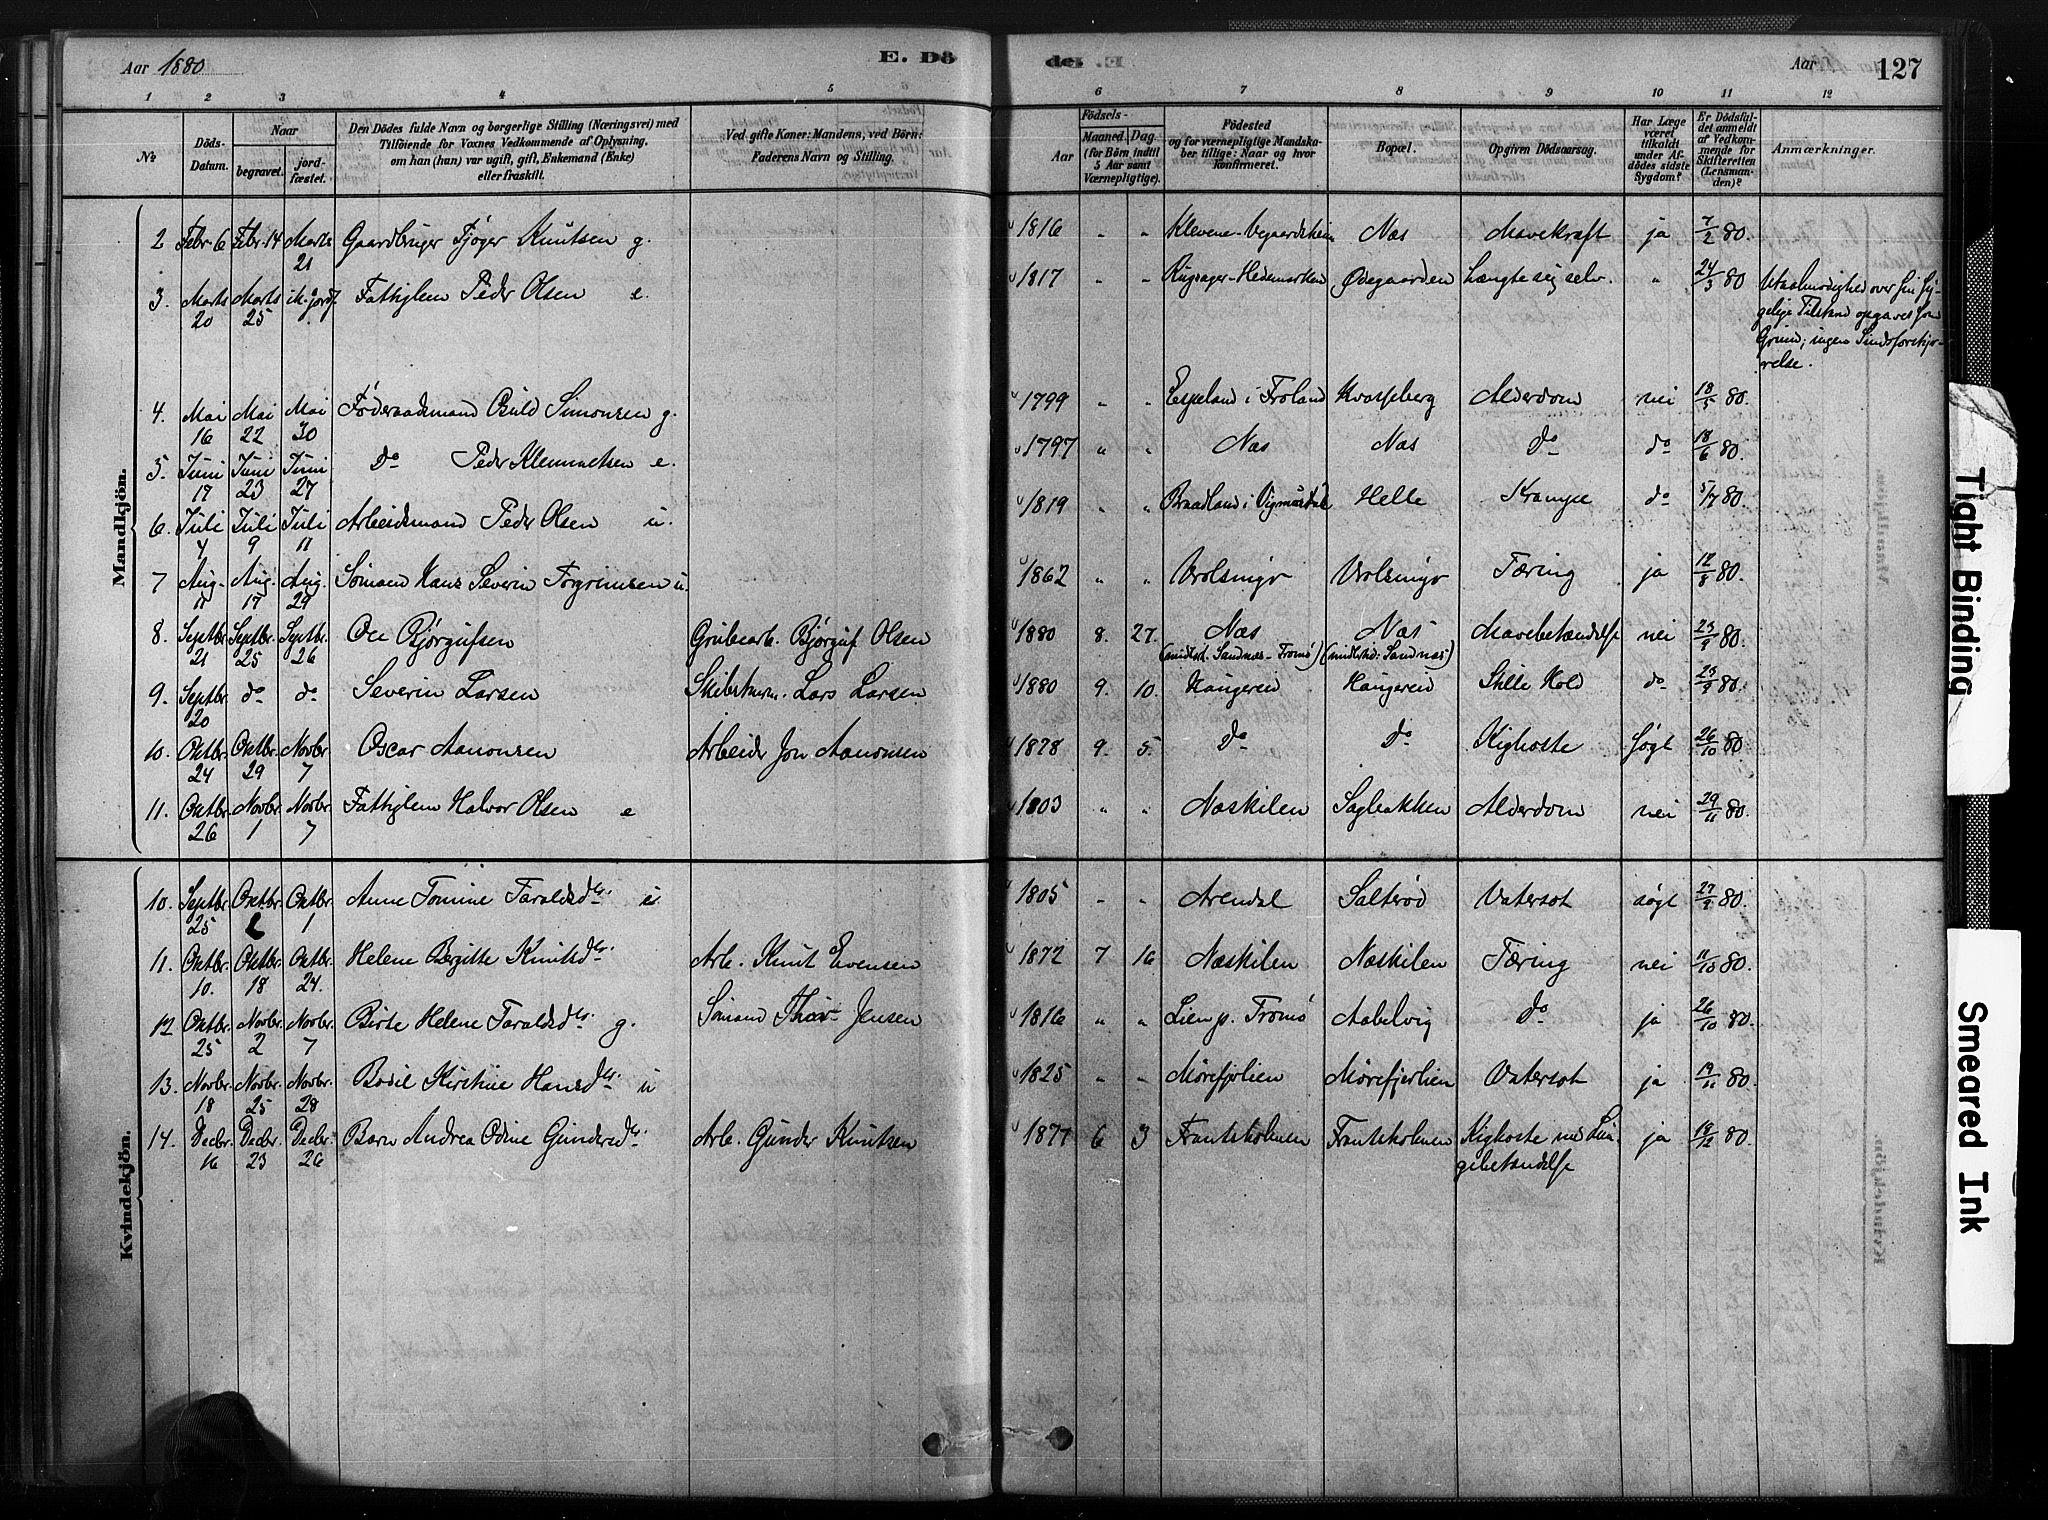 Aar 1880
E. Dö
de.
Aar
127
1 2 3 4 5 6 7 8 9 10 11 12
No
Döds-Datum.
Naar begravet. jordfæstet.
Den Dödes fulde Navn og borgerlige Stilling (Næringsvei) med Tilföiende for Voxnes Vedkommende af Oplysning, om han (hun) var ugift, gift, Enkemand (Enke) eller fraskilt.
Ved gifte Koner: Mandens, ved Börn: Faderens Navn og Stilling.
Aar
Födsels-
Maaned. Dag.
(for Börn indtil 5 Aar samt Værnepligtige).
Födested og for værnepligtige Mandskaber tillige: Naar og hvor Konfirmeret.
Bopæl.
Opgiven Dödsaarsag.
Har Læge været tilkaldt under Afdödes sidste Sygdom?
Er Dödsfaldet anmeldt af Vedkommende for Skifteretten (Lensmanden)?
Anmærkninger.
Mandkjön.
2 Febr. 6 Febr. 14 Marts 21 Gaardbruger Tjøger Knutsen g. 1816 " " Klevene-Vegaardsheim Næs Mavekræft ja 7/2 80.
3. Marts 20 Marts 25 Fattiglem Peder Olsen e. 1817 " " Hedemarken Ødegaarden Hængte sig selv. " 24/3 80 Utaalmodighed over sin sygelige Tilstand opgaves som Grund; ingen Sindsforstyrrelse.
4. Mai 16 Mai 22 Mai 30 Føderaadsmand Simonsen g. 1799 " " Espeland i Froland Alderdom nei 18/5 80.
5. Juni 17 Juni 23 Juni 27 Do Peder Klemmetsen e. 1797 " " Næs Næs Do do 18/6 80.
6. Juli 4 Juli 9 Juli 11 Arbeidsmand Peder Olsen u. 1819 " " Braadland i Vigmostad Helle Krampe do 5/7 80.
7 Aug. 11 Aug. 17 Aug. 29 Sømand Hans Severin Torgrimsen u. 1862 " " Færing ja 12/8 80.
8. Septbr. 21 Septbr. 25 Septbr. 26 Ole Bjørgufsen Grubearb. Bjørguf Olsen 1880 8. 27. Næs (midlert. Sandnæs-Tromø) Næs (midlertid: Sandnæs) Mavebetændelse nei 23/9 80.
9. Septbr. 20 do do Severin Larsen Lars Larsen 1880 9. 10. Haugereid Haugereid Stille Hold do 23/9 80.
10. Oktbr. 24 Oktbr. 29 Novbr. 7 Oscar Aanonsen Arbeider Jon Aanonsen 1878 9. 5. Do Do Kighoste søgt 26/10 80
11. Oktbr. 26 Novbr. 1 Novbr. 7 Fattiglem Halvor Olsen e 1803 " " Næskilen Sagbakken Alderdom nei 29/11 80.
Kvindekjön.
10. Septbr. 25 Oktbr. Oktbr. 1 Anne Tomine Taraldsdtr. u 1805 " " Arendal Salterød Vatersot søgt 27/9 80.
11. Oktbr. 10. Oktbr. 18 Oktbr. 24. Helene Bergitte Knutsdtr. Arb. Knut Evensen 1872 7 16 Næskilen Næskilen Tæring nei 11/10 80.
12 Oktbr. 25 Novbr. 2 Novbr. 7 Birte Helene Taraldsdtr. g. Sømand Jensen 1816 " " Lien p. Tromø Aabelvig Do ja 26/10 80.
13. Novbr. 18 Novbr. 25 Novbr. 28 Bodil Kirstine Hansdtr. u 1825 " " Mørefjærlien Mørefjærlien Vatersot ja 19/11 80.
14. Decbr. 16 Decbr. 23 Decbr. 26 Barn Andrea Odine Gundersdtr. Arb. Gunder Knutsen 1877 6 3 Frantsholmen Frantsholmen Kighoste med Lungebetændelse ja 18/12 80.
Tight Binding
Smeared Ink